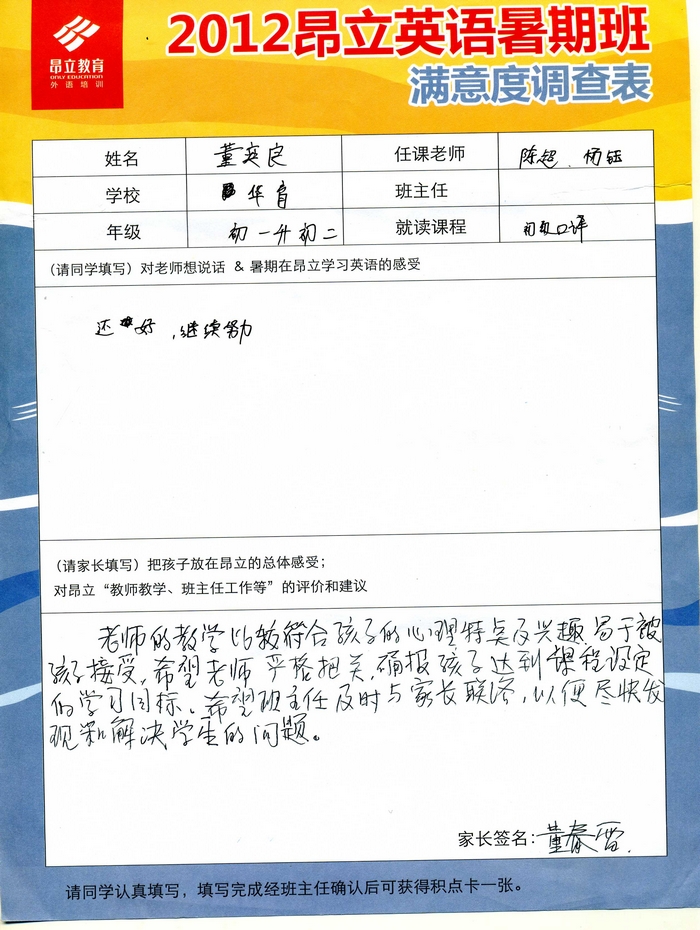 昂立教育
ONLY EDUCATION
外语培训
2012昂立英语暑期班
满意度调查表
姓名 董奕良 任课老师 陈超、杨钰
学校 华育 班主任
年级 初一升初二 就读课程 初级口译
(请同学填写)对老师想说话 & 暑期在昂立学习英语的感受
还好,继续努力
(请家长填写)把孩子放在昂立的总体感受;
对昂立“教师教学、班主任工作等”的评价和建议
老师的教学比较符合孩子的心理特点及兴趣易于被
孩子接受,希望老师严格把关,确报孩子达到课程设定
的学习目标、希望班主任及时与家长联络,以便尽快发
现和解决学生的问题。
家长签名:董春雷
请同学认真填写,填写完成经班主任确认后可获得积点卡一张。